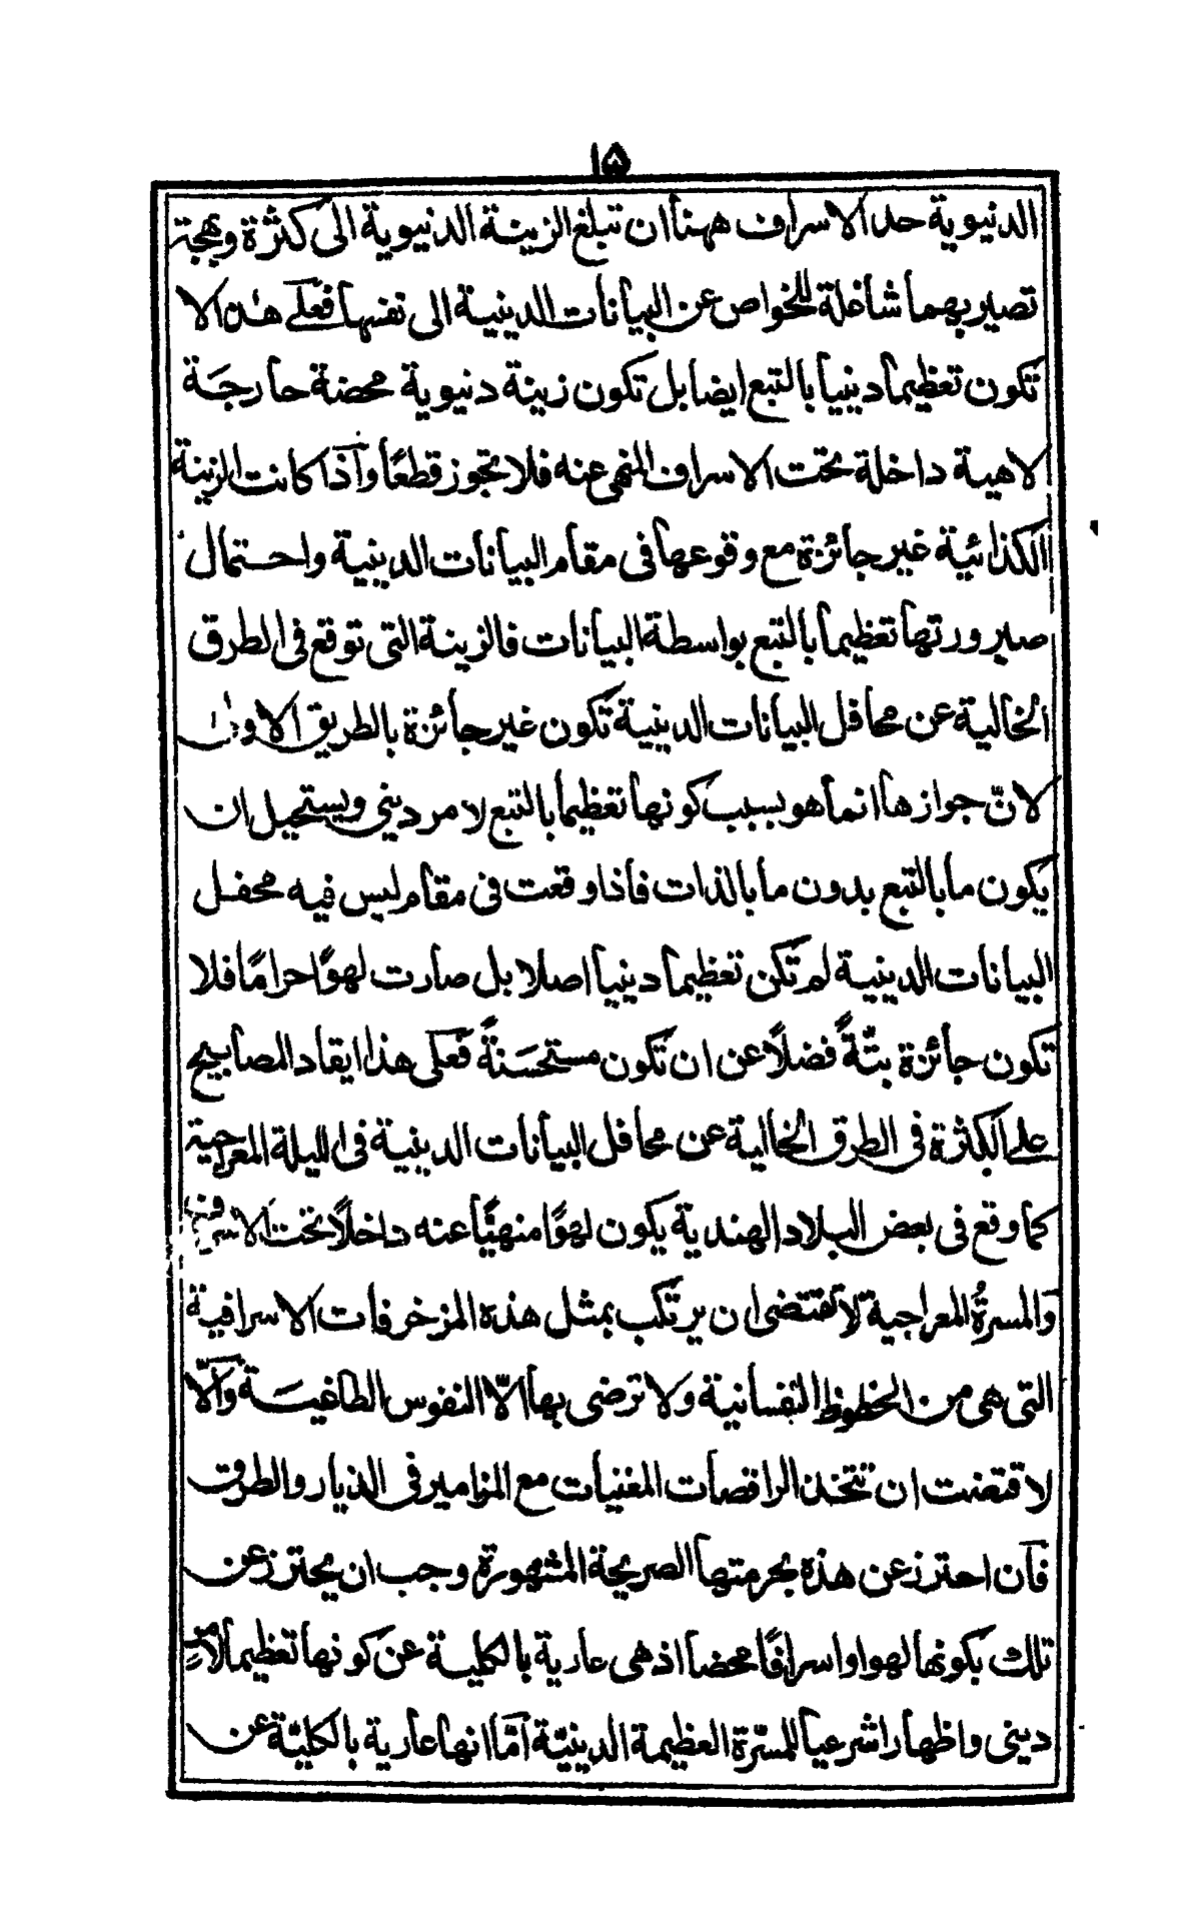 ١٥
الدنيوية حد الاسراف ههنا ان تبلغ الزينة الدنيوية الى كثرة وبهجة
تصير بهما شاغلة للخواص عن البيانات الدينية الى نفسها فعلى هذا لا
تكون تعظيما دينيا بالتبع ايضا بل تكون زينة دنيوية محضة حارجة
لاهية داخلة تحت الاسراف المنهى عنه فلا تجوز قطعًا وآذا كانت الزينة
الكذائية غير جائزة مع وقوعها فى مقام البيانات الدينية واحتمال
صيرورتها تعظيما بالتبع بواسطة البيانات فالزينة التى توقع فى الطرق
الخالية عن محافل البيانات الدينية تكون غير جائزة بالطريق الاولى
لانّ جوازها انما هو بسبب كونها تعظيما بالتبع لامر دينى ويستحيل ان
يكون ما بالتبع بدون ما بالذات فاذا وقعت فى مقام ليس فيه محفل
البيانات الدينية لم تكن تعظيما دينيا اصلا بل صارت لهوًا حرامًا فلا
تكون جائزة بتّةً فضلًا عن ان تكون مستحسَنةً فعلى هذا ايقاد المصابيح
على الكثرة فى الطرق الخالية عن محافل البيانات الدينية فى الليلة المعراجية
كما وقع فى بعض البلاد الهندية يكون لهوًا منهيًّا عنه داخلًا تحت الاسراف
والمسرةُ المعراجية لا تقتضى ان يرتكب بمثل هذه المزخرفات الاسرافية
التى هى من الحظوظ النفسانية ولا ترضى بها الاّ النفوس الطاغيَة وآلّا
لاقتضت ان تتخذ الراقصات المغنيات مع المزامير فى الديار والطرق
فآن احترز عن هذه بحرمتها الصريحة المشهورة وجب ان يحترز عن
تلك بكونها لهوا واسرافًا محضا اذ هى عارية بالكلية عن كونها تعظيما لامرٍ
دينى واظهارا شرعيا للمسّرة العظيمة الدينيّة آمّا انها عارية بالكليّة عن